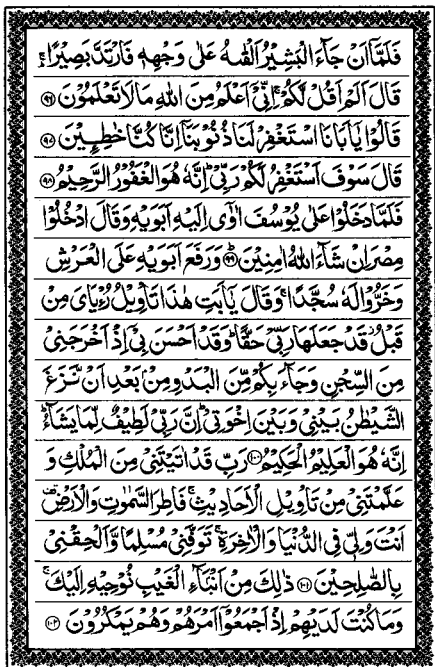 فَلَمَّآ اَنْ جَآءَ الْبَشِيْرُ اَلْقٰىهُ عَلٰى وَجْهِهٖ فَارْتَدَّ بَصِيْرًا ۚ
قَالَ اَلَمْ اَقُلْ لَّكُمْ ۚ اِنِّيْٓ اَعْلَمُ مِنَ اللّٰهِ مَا لَا تَعْلَمُوْنَ ۹۶
قَالُوْا يٰٓاَبَانَا اسْتَغْفِرْ لَنَا ذُنُوْبَنَآ اِنَّا كُنَّا خٰطِـِٕيْنَ ۹۷
قَالَ سَوْفَ اَسْتَغْفِرُ لَكُمْ رَبِّيْ ؕ اِنَّهٗ هُوَ الْغَفُوْرُ الرَّحِيْمُ ۹۸
فَلَمَّا دَخَلُوْا عَلٰى يُوْسُفَ اٰوٰٓى اِلَيْهِ اَبَوَيْهِ وَقَالَ ادْخُلُوْا
مِصْرَ اِنْ شَآءَ اللّٰهُ اٰمِنِيْنَ ؕ ۹۹ وَرَفَعَ اَبَوَيْهِ عَلَى الْعَرْشِ
وَخَرُّوْا لَهٗ سُجَّدًا ۚ وَقَالَ يٰٓاَبَتِ هٰذَا تَاْوِيْلُ رُءْيَايَ مِنْ
قَبْلُ ؗ قَدْ جَعَلَهَا رَبِّيْ حَقًّا ؕ وَقَدْ اَحْسَنَ بِيْٓ اِذْ اَخْرَجَنِيْ
مِنَ السِّجْنِ وَجَآءَ بِكُمْ مِّنَ الْبَدْوِ مِنْۢ بَعْدِ اَنْ نَّزَغَ
الشَّيْطٰنُ بَيْنِيْ وَبَيْنَ اِخْوَتِيْ ؕ اِنَّ رَبِّيْ لَطِيْفٌ لِّمَا يَشَآءُ ؕ
اِنَّهٗ هُوَ الْعَلِيْمُ الْحَكِيْمُ ۱۰۰ رَبِّ قَدْ اٰتَيْتَنِيْ مِنَ الْمُلْكِ وَ
عَلَّمْتَنِيْ مِنْ تَاْوِيْلِ الْاَحَادِيْثِ ۚ فَاطِرَ السَّمٰوٰتِ وَالْاَرْضِ ۟
اَنْتَ وَلِيّٖ فِي الدُّنْيَا وَالْاٰخِرَةِ ۚ تَوَفَّنِيْ مُسْلِمًا وَّاَلْحِقْنِيْ
بِالصّٰلِحِيْنَ ۱۰۱ ذٰلِكَ مِنْ اَنْۢبَآءِ الْغَيْبِ نُوْحِيْهِ اِلَيْكَ ۚ
وَمَا كُنْتَ لَدَيْهِمْ اِذْ اَجْمَعُوْٓا اَمْرَهُمْ وَهُمْ يَمْكُرُوْنَ ۱۰۲